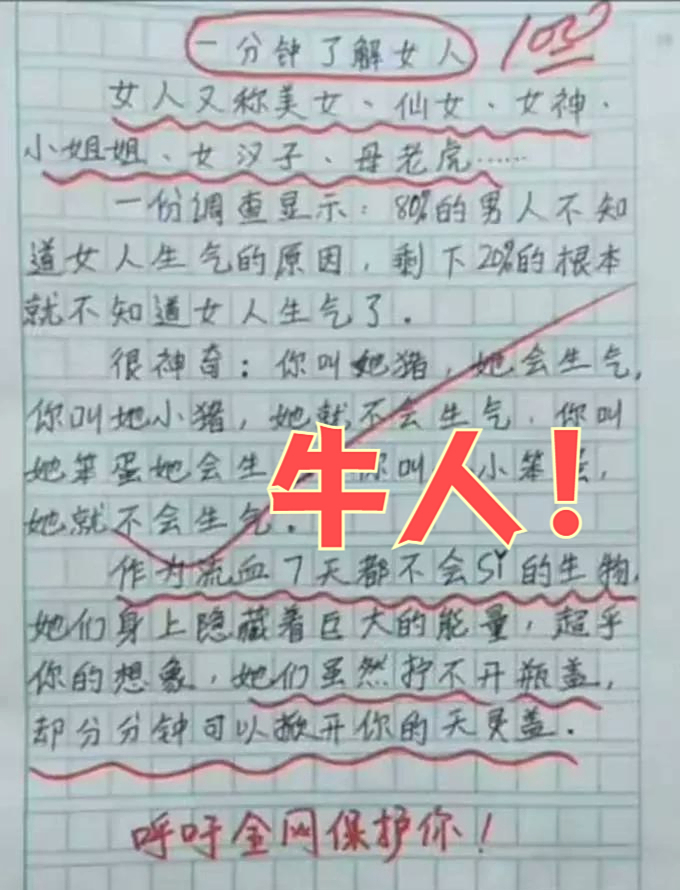 一分钟了解女人
100
女人又称美女、仙女、女神、
小姐姐、女汉子、母老虎……
一份调查显示：80%的男人不知
道女人生气的原因，剩下20%的根本
就不知道女人生气了．
很神奇：你叫她猪，她会生气，
你叫她小猪，她就不会生气．你叫
她笨蛋她会生 你叫 小笨蛋，
牛人！
她就不会生气．
作为流血7天都不会Si的生物，
她们身上隐藏着巨大的能量，超乎
你的想象，她们虽然拧不开瓶盖，
却分分钟可以掀开你的天灵盖．
呼吁全网保护你！